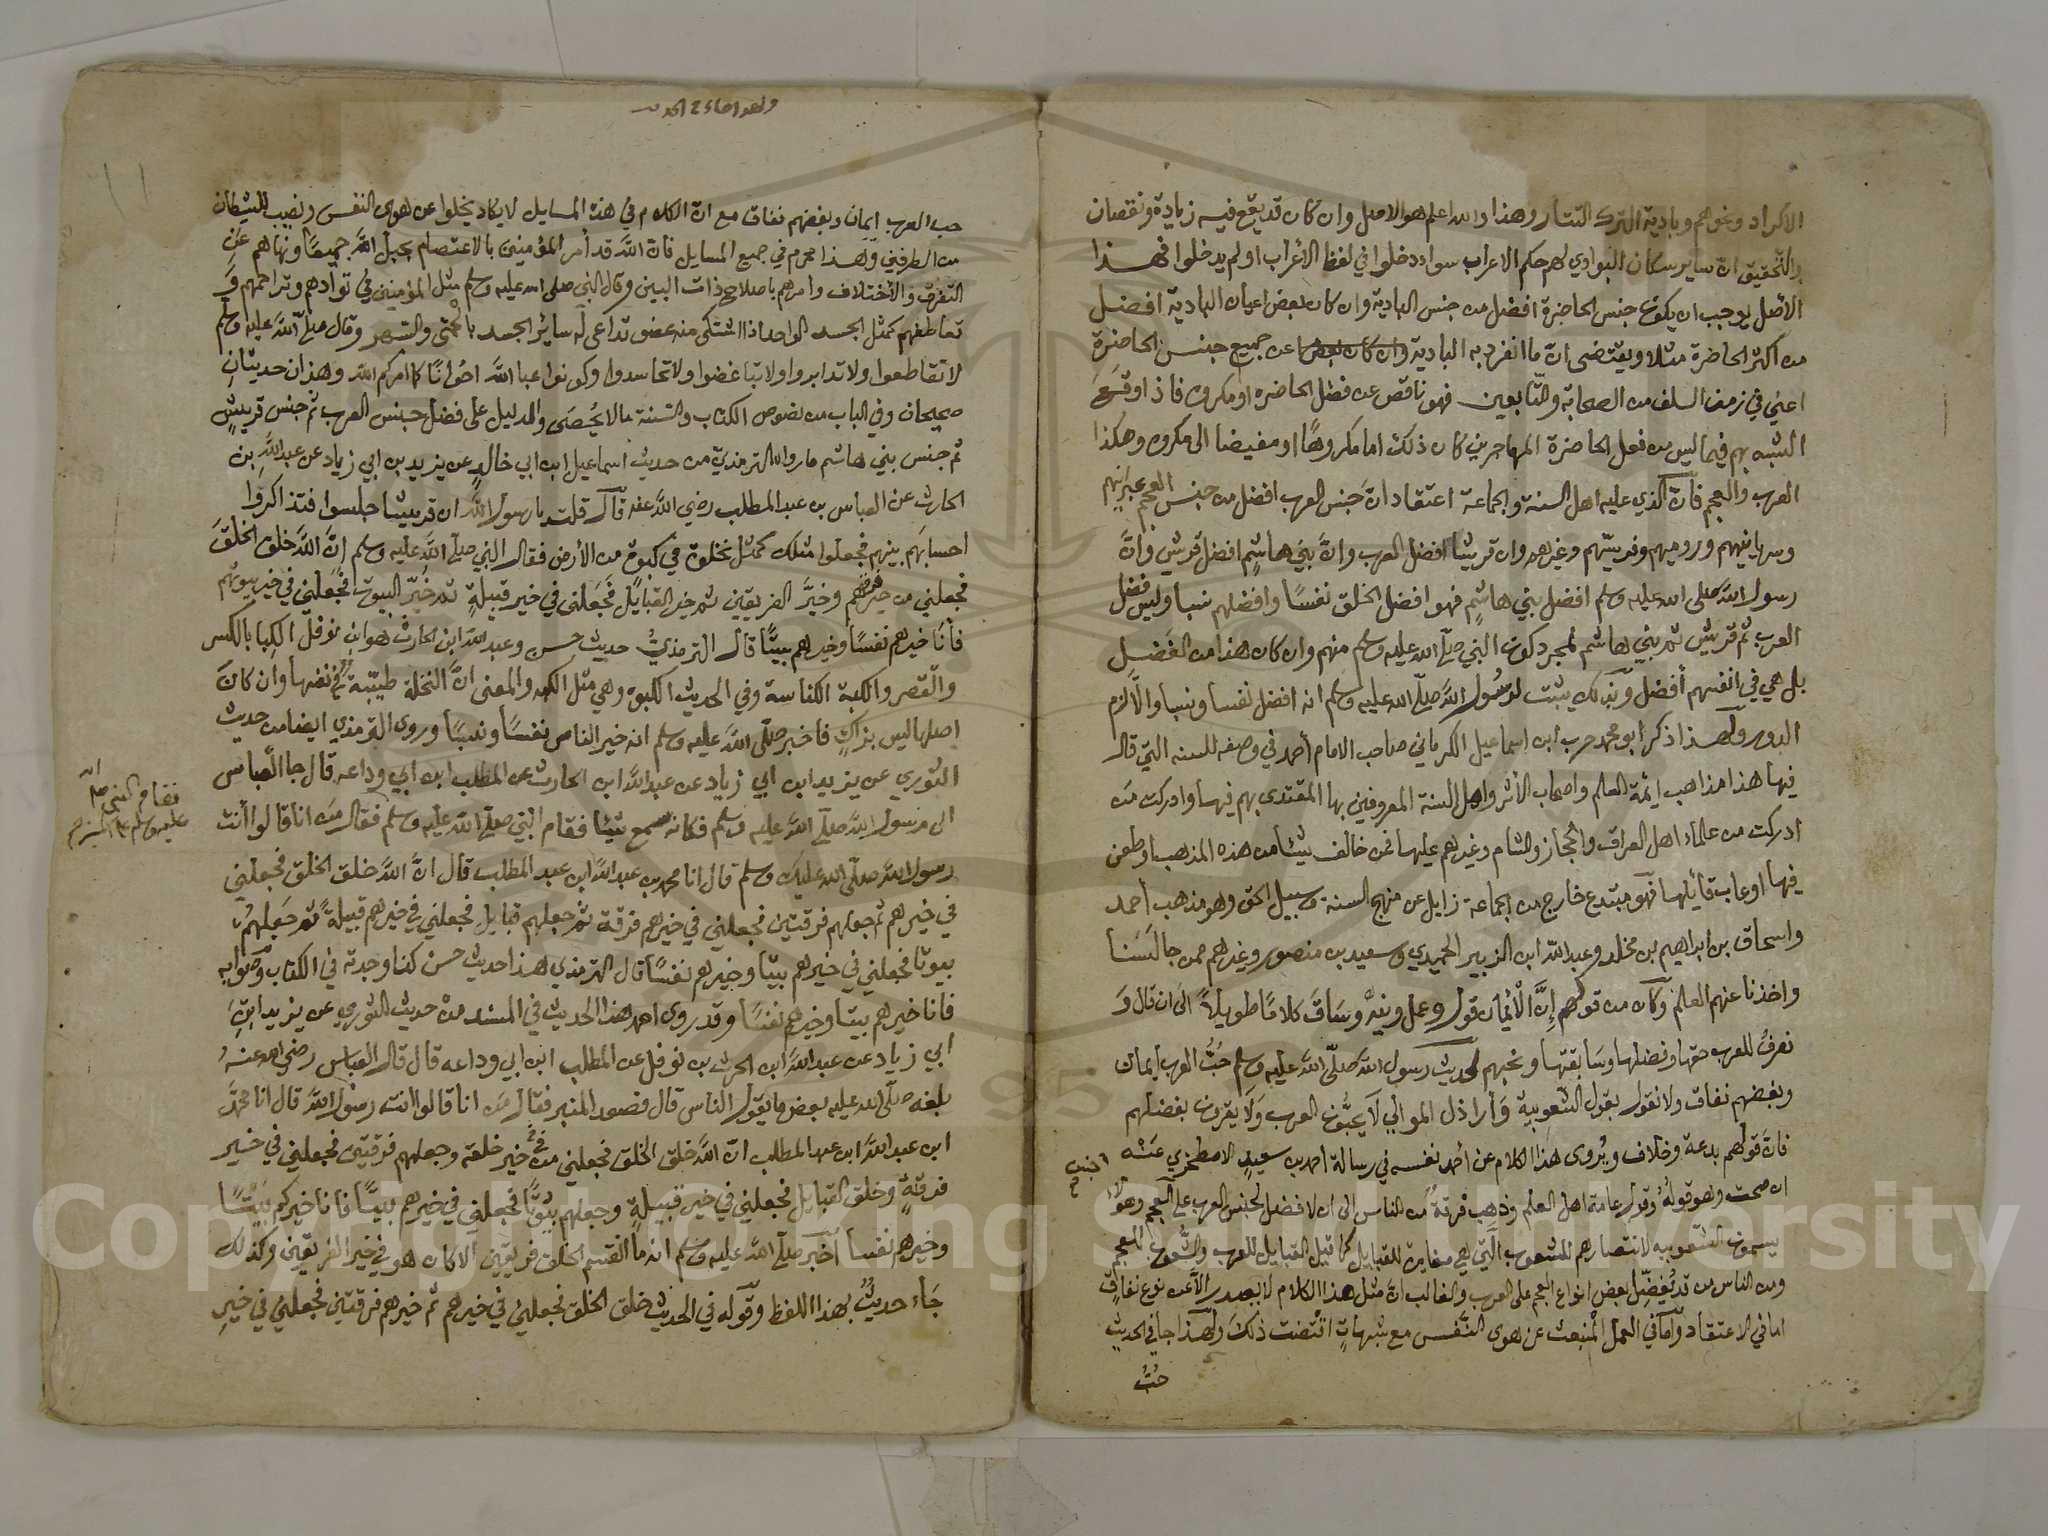 الاكراد ونحوهم وبادية الترك التتار وهذا والله اعلم هو الاصل وان كان قد يقع فيه زيادة ونقصان
والتحقيق ان ساير سكان البوادي لهم حكم الاعراب سواء دخلوا في لفظ الأعراب او لم يدخلوا فهذا
الأصل يوجب ان يكون جنس الحاضرة افضل من جنس البادية وان كان بعض اعيان البادية افضل
من اكثر الحاضرة مثلا ويقتضي ان ما انفرد به البادية عن جميع جنس الحاضرة
اعني في زمن السلف من الصحابة والتابعين فهو ناقص عن فضل الحاضره او مكروه فاذا وقع
التشبه بهم فيما ليس من فعل الحاضرة المهاجرين كان ذلك اما مكروهًا او مفيضا الى مكروه وهكذا
العرب والعجم فان الذي عليه اهل السنة والجماعة اعتقاد ان جنس العرب افضل من جنس العجم عبرانيهم
وسريانيهم وروميهم وفرسيهم وغيرهم وان قريشا افضل العرب وان بني هاشم افضل قريش وان
رسول الله صلى الله عليه وسلم افضل بني هاشم فهو افضل الخلق نفسًا وافضلهم نسبا وليس فضل
العرب ثم قريش ثم بني هاشم لمجرد كون النبي صلى الله عليه وسلم منهم وان كان هذا من الفضل
بل هي في انفسهم أفضل وبذلك يثبت لرسول الله صلى الله عليه وسلم انه افضل نفسا ونسبا والا لزم
الدور ولهذا ذكر ابو محمد حرب ابن اسماعيل الكرماني صاحب الامام أحمد في وصفه للسنه التي قال
فيها هذا مذاهب ائمة العلم واصحاب الأثر واهل السنة المعروفين بها المقتدى بهم فيها وادركت من
ادركت من علماء اهل العراق والحجاز والشام وغيرهم عليها فمن خالف شيئا من هذه المذهب او طعن
فيها او عاب قائلها فهو مبتدع خارج من الجماعة زايل عن منهج السنة وسبيل الحق وهو مذهب أحمد
واسحاق بن ابراهيم بن مخلد وعبد الله ابن الزبير الحميدي وسعيد بن منصور وغيرهم ممن جالسنا
واخذنا عنهم العلم وكان من قولهم إن الأيمان قول وعمل ونية وساق كلامًا طويلًا الى ان قال و
نعرف للعرب حقها وفضلها وسابقتها ونحبهم لحديث رسول الله صلى الله عليه وسلم حب العرب ايمان
وبغضهم نفاق ولا نقول بقول الشعوبية وأراذل الموالي لا يحبون العرب ولا يقرون بفضلهم
فان قولهم بدعة وخلاف ويروى هذا الكلام عن أحمد نفسه في رسالة احمد بن سعيد الاصطخري عنه
ان صحت وهو قوله وقول عامة اهل العلم وذهب فرقة من الناس الى ان لا فضل لجنس العرب على العجم وهولاء
يسمون الشعوبيه لانتصارهم للشعوب التي هي مغايرة للقبايل كما قيل القبايل للعرب والشعوب للعجم
ومن الناس من قد يفضل بعض انواع العجم على العرب والغالب ان مثل هذا الكلام لا يصدر الا عن نوع نفاق
اما في الاعتقاد واما في العمل المنبعث عن هوى النفس مع شبهات اقتضت ذلك ولهذا جا في الحديث
حُبُّ
حب العرب ايمان وبغضهم نفاق مع ان الكلام في هذه المسايل لا يكاد يخلوا عن هوى النفس ونصيب للشيطان
من الطرفين ولهذا محرم في جميع المسايل فان الله قد أمر المؤمنين بالاعتصام بحبل الله جميعًا ونهاهم عن
التفرق والأختلاف وامرهم باصلاح ذات البين وقال النبي صلى الله عليه وسلم مثل المؤمنين في توادهم وتراحمهم و
تعاطفهم كمثل الجسد الواحد اذا اشتكى منه عضو تداعى له سائر الجسد بالحمى والسهر وقال صلى الله عليه وسلم
لا تقاطعوا ولا تدابروا ولا تباغضوا ولا تحاسدوا وكونوا عبا الله اخوانًا كما امركم الله وهذان حديثان
صحيحان وفي الباب من نصوص الكتاب والسنة ما لا يحصى والدليل على فضل جنس العرب ثم جنس قريش
ثم جنس بني هاشم ما رواه الترمذي من حديث اسماعيل ابن ابي خالد عن يزيد بن ابي زياد عن عبد الله بن
الحارث عن العباس بن عبد المطلب رضي الله عنه قال قلت يا رسول الله ان قريشا جلسوا فتذاكروا
احسابهم بينهم فجعلوا مثلك كمثل نخلة في كبوة من الأرض فقال النبي صلى الله عليه وسلم إن الله خلق الخلق
فجعلني من خيرهم وخيَّر الفريقين ثم خير القبايل فجعلني في خير قبيلة ثم خير البيوت فجعلني في خير بيوتهم
فأنا خيرهم نفسًا وخيرهم بيتًا قال الترمذي حديث حسن وعبد الله ابن الحارث هو ابن نوفل الكبا بالكسر
والقصر والكبة الكناسة وفي الحديث الكبوه وهي مثل الكبه والمعنى ان النخلة طيبة في نفسها وان كان
اصلها ليس بذاك فاخبر صلى الله عليه وسلم انه خير الناس نفسًا ونسبًا وروى الترمذي ايضا من حديث
الثوري عن يزيد ابن ابي زياد عن عبد الله ابن الحارث عن المطلب ابن ابي وداعه قال جا العباس
الى رسول الله صلى الله عليه وسلم فكانه سمع شيئا فقام النبي صلى الله عليه وسلم فقال من انا قالوا أنت
فقام النبي صلى الله
عليه وسلم على المنبر صح
رسول الله صلى الله عليك وسلم قال انا محمد بن عبد الله ابن عبد المطلب قال ان الله خلق الخلق فجعلني
في خيرهم ثم جعلهم فرقتين فجعلني في خيرهم فرقة ثم جعلهم قبايل فجعلني في خيرهم قبيلة ثم جعلهم
بيوتا فجعلني في خيرهم بيتا وخيرهم نفسًا قال الترمذي هذا حديث حسن كذا وجدته في الكتاب وصوابه
فانا خيرهم بيتا وخيرهم نفسًا وقد روى احمد هذا الحديث في المسند من حديث الثوري عن يزيد ابن
ابي زياد عن عبد الله ابن الحرث بن نوفل عن المطلب ابن ابي وداعه قال قال العباس رضي الله عنه
بلغه صلى الله عليه بعض ما يقول الناس قال فصعد المنبر فقال من انا قالوا انت رسول الله قال انا محمد
ابن عبد الله ابن عبد المطلب ان الله خلق الخلق فجعلني من خير خلقه وجعلهم فرقتين فجعلني في خير
فرقة وخلق القبايل فجعلني في خير قبيلة وجعلهم بيوتًا فجعلني في خيرهم بيتًا فانا خيركم بيتًا
وخيرهم نفسا أخبر صلى الله عليه وسلم انه ما انقسم الخلق فريقين الا كان هو في خير الفريقين وكذلك
جاء حديث بهذا اللفظ وقوله في الحديث خلق الخلق فجعلني في خيرهم ثم خيرهم فرقتين فجعلني في خير
Copyright © King Saud University